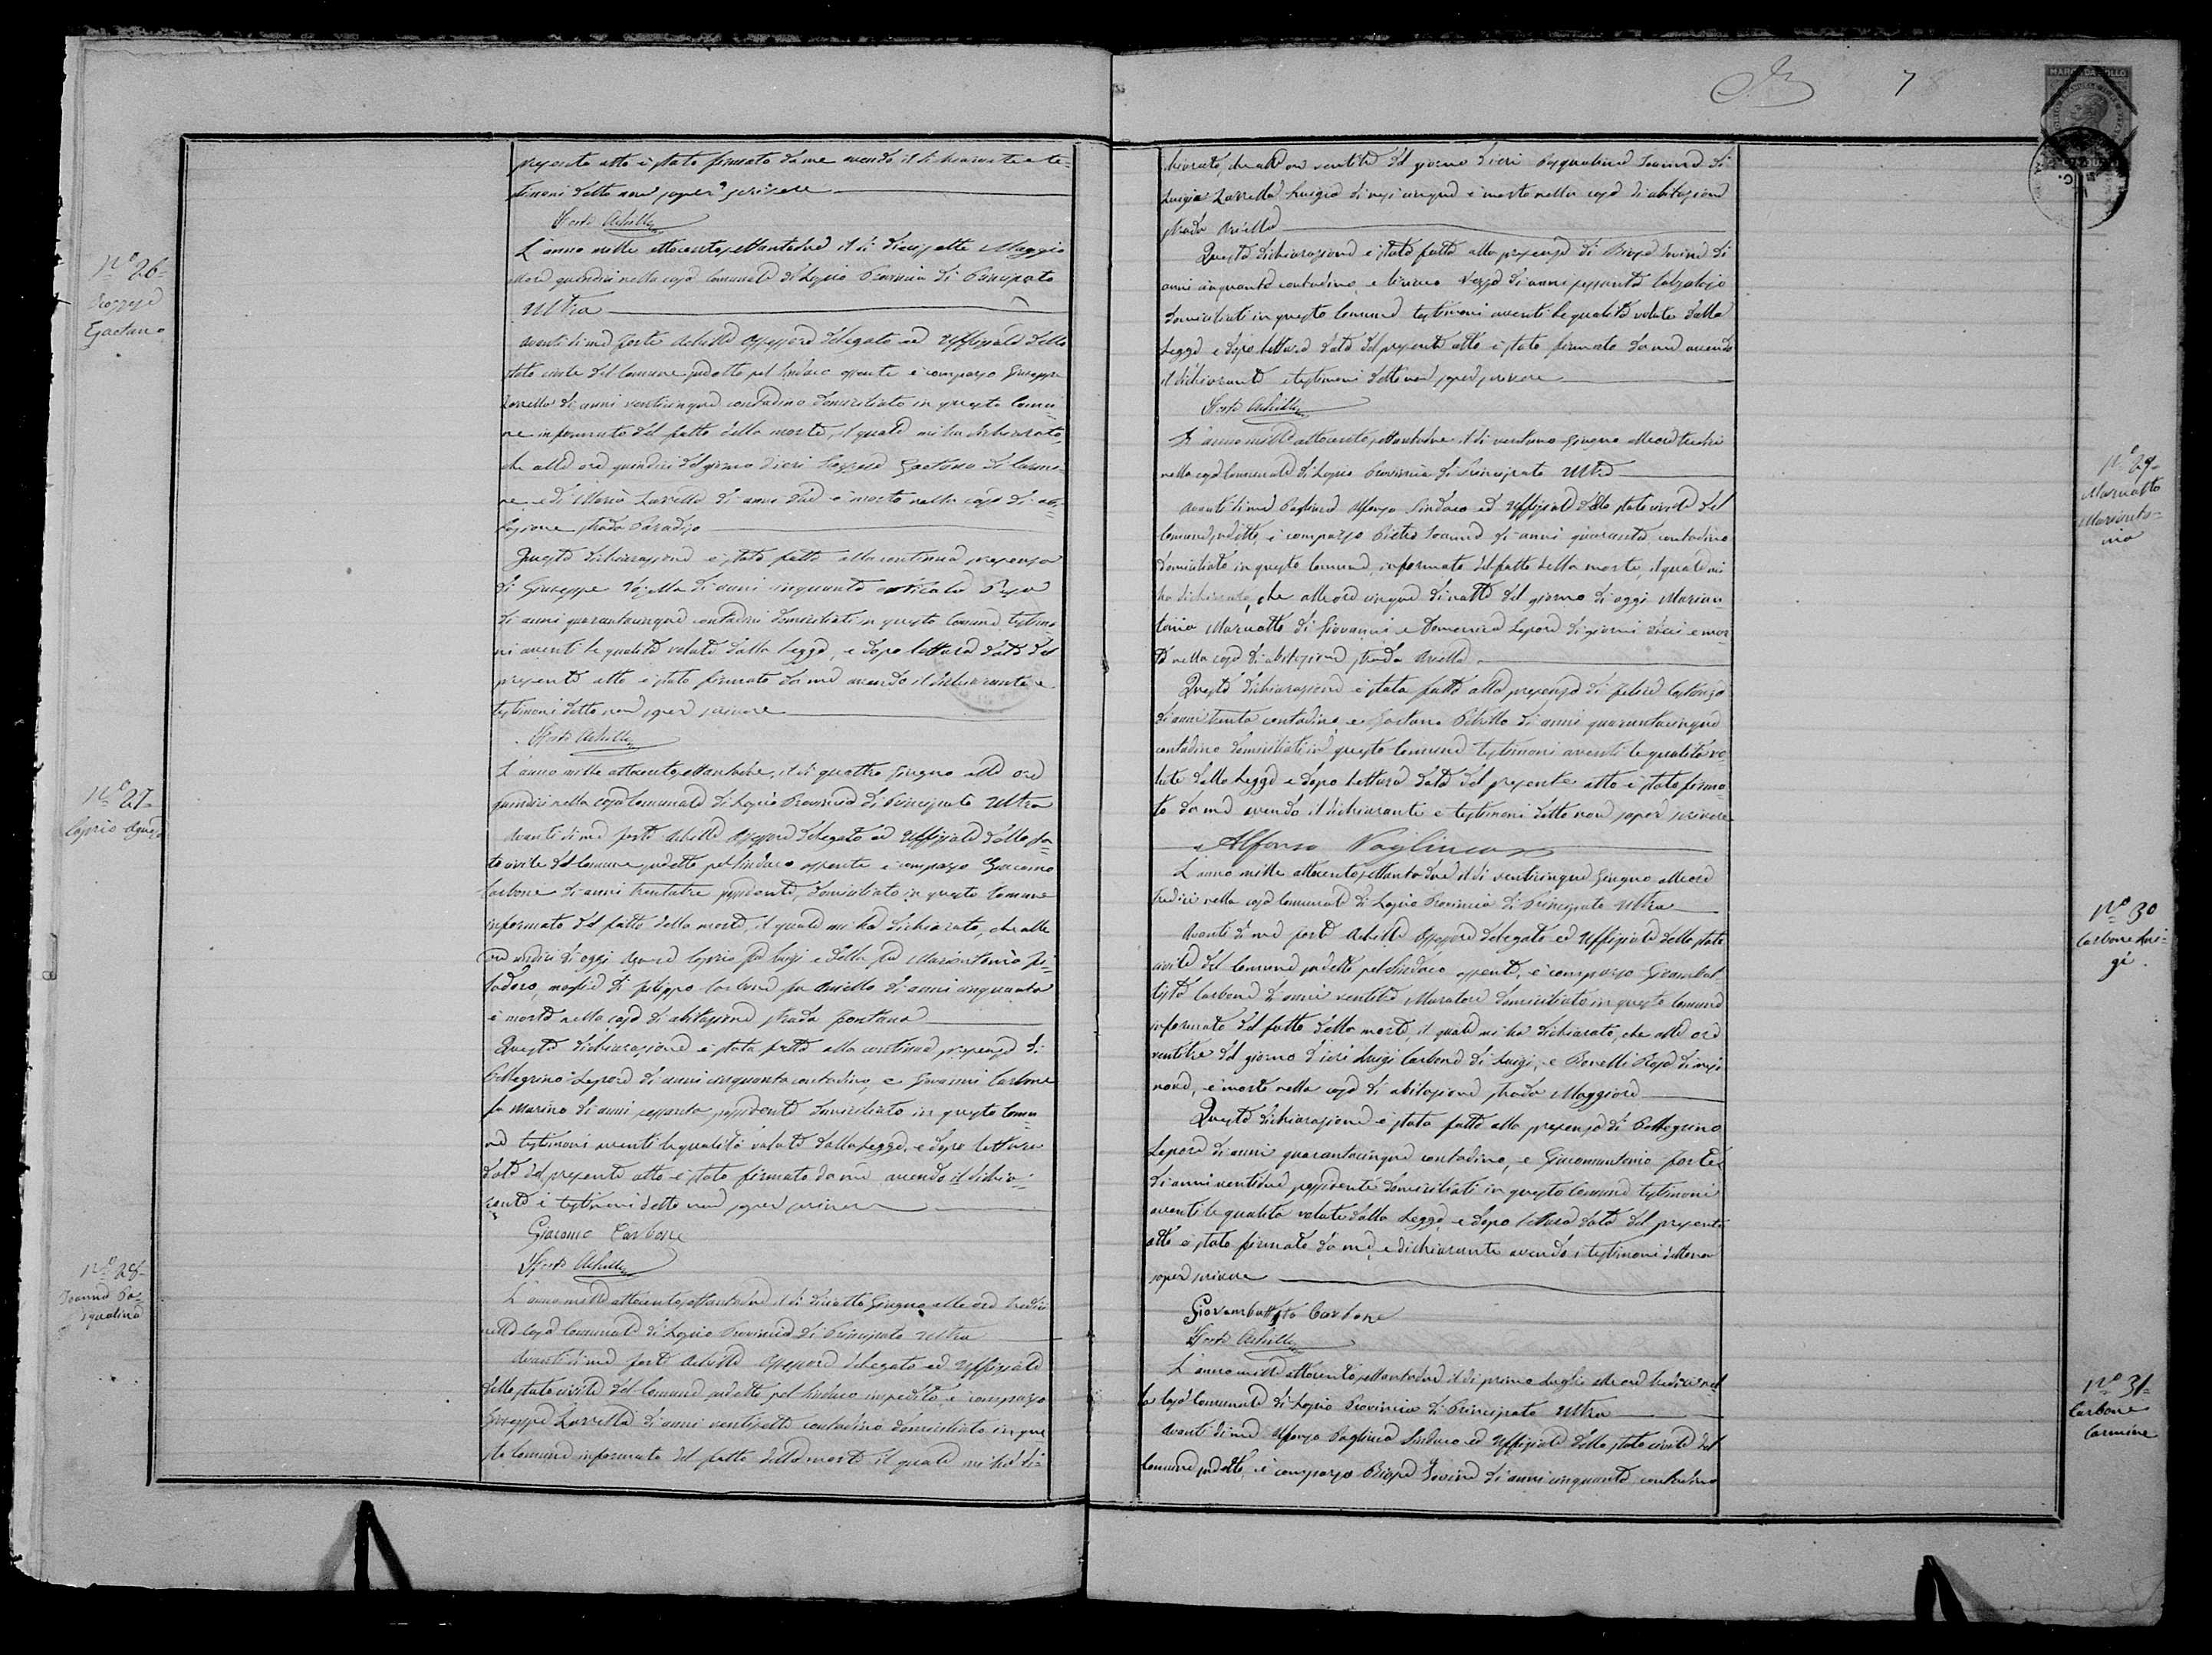 presente atto è stato firmato da me avendo il dichiarante e te=
stimoni detto non saper scrivere
Forte Achille
Nº 26=
Gaetano
L'anno mille ottocentosettantadue il dì diciassette Maggio
alle ore quindici nella casa Comunale di Provincia di Principato
Ultra
Avanti di me Forte Achille Assessore delegato ed Uffiziale dello
stato civile del Comune pel Sindaco assente è comparso Giuseppe
Zarrella di anni venticinque contadino domiciliato in questo Comu=
ne informato del fatto della morte, il quale mi ha dichiarato,
che alle ore quindici del giorno d'ieri Gaetano di Carmi=
ne e di Maria Zarrella di anni due è morto nella casa di abi=
tazione strada Paradiso
Questa dichiarazione è stata fatta alla continua presenza
di Giuseppe di anni cinquanta
di anni quarantacinque contadini domiciliati in questo Comune testimo=
ni aventi le qualità volute dalla legge, e dopo lettura data del
presente atto è stato firmato da me avendo il dichiarante e
testimoni detto non saper scrivere
Forte Achille
Nº 27=
Caprio Agnese
L'anno mille ottocentosettantadue, il dì quattro Giugno alle ore
quindici nella casa Comunale di Provincia di Principato Ultra
Avanti di me Forte Achille Assessore delegato ed Uffiziale dello sta=
to civile del Comune pel Sindaco assente è comparso Giacomo
Carbone di anni trentatre possidente, domiciliato in questo Comune
informato del fatto della morte, il quale mi ha dichiarato, che alle
ore undici di oggi Caprio fu Luigi e della fu Mariantonia
moglie di Filippo Carbone fu Aniello di anni cinquanta
è morta nella casa di abitazione strada Fontana
Questa dichiarazione è stata fatta alla continua presenza di
Pellegrino Lepore di anni cinquanta contadino, e Giovanni Carbone
fu Marino di anni sessanta possidente domiciliato in questo Comu=
ne testimoni aventi le qualità volute dalla Legge, e dopo lettura
data del presente atto è stato firmato da me avendo il dichia=
rante i testimoni detto non saper scrivere
Giacomo Carbone
Forte Achille
Nº 28=
Ioanna Pa=
squalina
L'anno mille ottocentosettantadue il dì diciotto Giugno alle ore tredici
nella casa Comunale di Provincia di Principato Ultra
Avanti di me Forte Achille Assessore delegato ed Uffiziale
dello stato civile del Comune pel Sindaco impedito è comparso
Giuseppe Zarrella di anni ventisette contadino domiciliato in que
sto Comune informato del fatto della morte il quale mi ha di=
7
MARCA DA BOLLO
chiarato, che alle ore ventitre del giorno d'ieri Pasqualina Ioanna di
Luigi e Zarrella Luigia di mesi cinque è morta nella casa di abitazione
strada Aniella
Questa dichiarazione è stata fatta alla presenza di di
anni cinquanta contadino, e di anni sessanta Calzolajo
domiciliati in questo Comune testimoni aventi le qualità volute dalla
Legge e dopo lettura data del presente atto è stato firmato da me avendo
il dichiarante e testimoni detto non saper scrivere
Forte Achille
Nº 29=
Maruotto
Marianto=
nia
L'anno mille ottocentosettantadue il dì ventuno Giugno alle ore tredici
nella casa Comunale di Provincia di Principato Ultra
Avanti di me Pagliuca Alfonso Sindaco ed Uffiziale dello stato civile del
Comune è comparso Pietro Ioanna di anni quaranta contadino
domiciliato in questo Comune, informato del fatto della morte, il quale mi
ha dichiarato, che alle ore cinque di notte del giorno di oggi Marian=
tonia Maruotto di Giovanni e Domenica Lepore di giorni dieci è mor=
ta nella casa di abitazione strada Aniella
Questa dichiarazione è stata fatta alla presenza di Felice
di anni trenta contadino e Gaetano Petrillo di anni quarantacinque
contadino domiciliati in questo Comune testimoni aventi le qualità vo=
lute dalla Legge e dopo lettura data del presente atto è stato firma=
to da me avendo il dichiarante e testimoni detto non saper scrivere
Alfonso Pagliuca
Nº 30
Carbone Lui=
gi
L'anno mille ottocentosettantadue il dì venticinque Giugno alle ore
tredici nella casa Comunale di Provincia di Principato Ultra
Avanti di me Forte Achille Assessore delegato ed Uffiziale dello stato
civile del Comune pel Sindaco assente, è comparso Giambat=
tista Carbone di anni ventitre Muratore domiciliato in questo Comune
informato del fatto della morte, il quale mi ha dichiarato, che alle ore
ventitre del giorno d'ieri Luigi Carbone di Luigi, e Bonelli Rosa di mesi
nove, è morto nella casa di abitazione strada Maggiore
Questa dichiarazione è stata fatta alla presenza di Pellegrino
Lepore di anni quarantacinque contadino, e Giacomantonio Forte
di anni ventidue possidente domiciliati in questo Comune testimoni
aventi le qualità volute dalla Legge, e dopo lettura data del presente
atto è stato firmato da me e dichiarante avendo i testimoni detto non
saper scrivere
Giovambattista Carbone
Forte Achille
Nº 31=
Carbone
Carmine
L'anno mille ottocentosettantadue il dì primo Luglio alle ore tredici nel
la casa Comunale di Provincia di Principato Ultra
Avanti di me Alfonso Pagliuca Sindaco ed Uffiziale dello stato civile del
Comune è comparso di anni cinquanta contadino